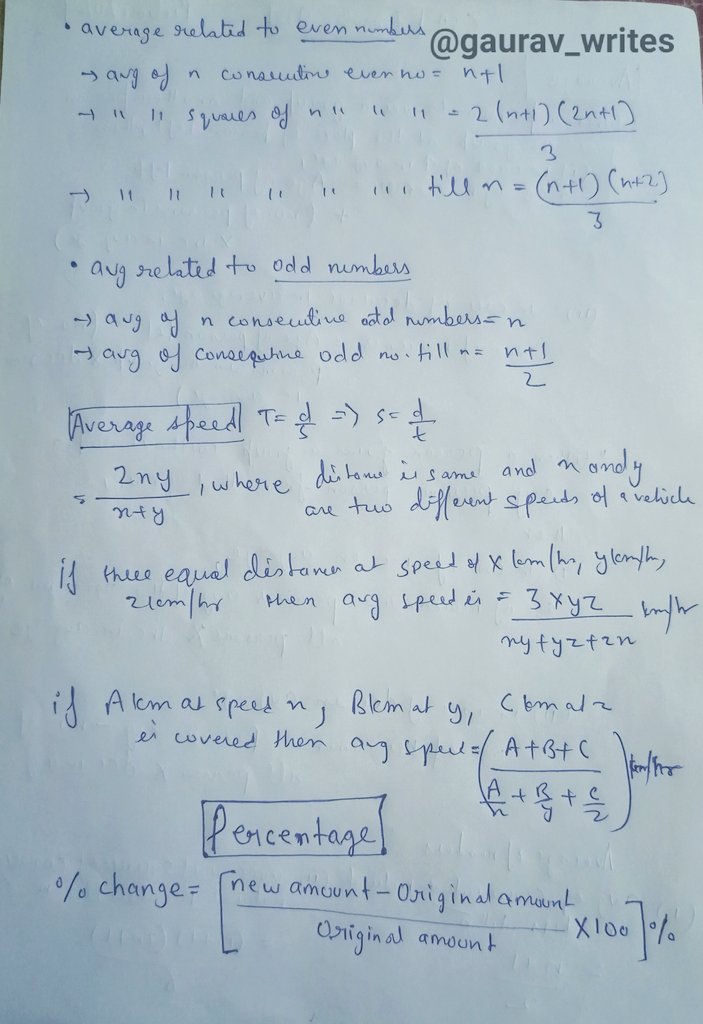 • average related to even numbers
@gaurav_writes
→ avg of n consecutive even no = n+1
→ " " squares of n " " " = 2(n+1)(2n+1)
3
→ " " " " " " " till n = (n+1)(n+2)
3
• avg related to odd numbers
→ avg of n consecutive odd numbers = n
→ avg of consecutive odd no. till n = n+1
2
Average speed T = d/s => s = d/t
= 2xy
x+y
, where distance is same and x and y
are two different speeds of a vehicle
if three equal distance at speed of x km/hr, y km/hr,
z km/hr then avg speed is = 3xyz km/hr
xy+yz+zx
if A km at speed x, B km at y, C km at z
is covered then avg speed = (A+B+C) km/hr
A/x + B/y + C/z
Percentage
% change = [new amount - Original amount
Original amount × 100]%